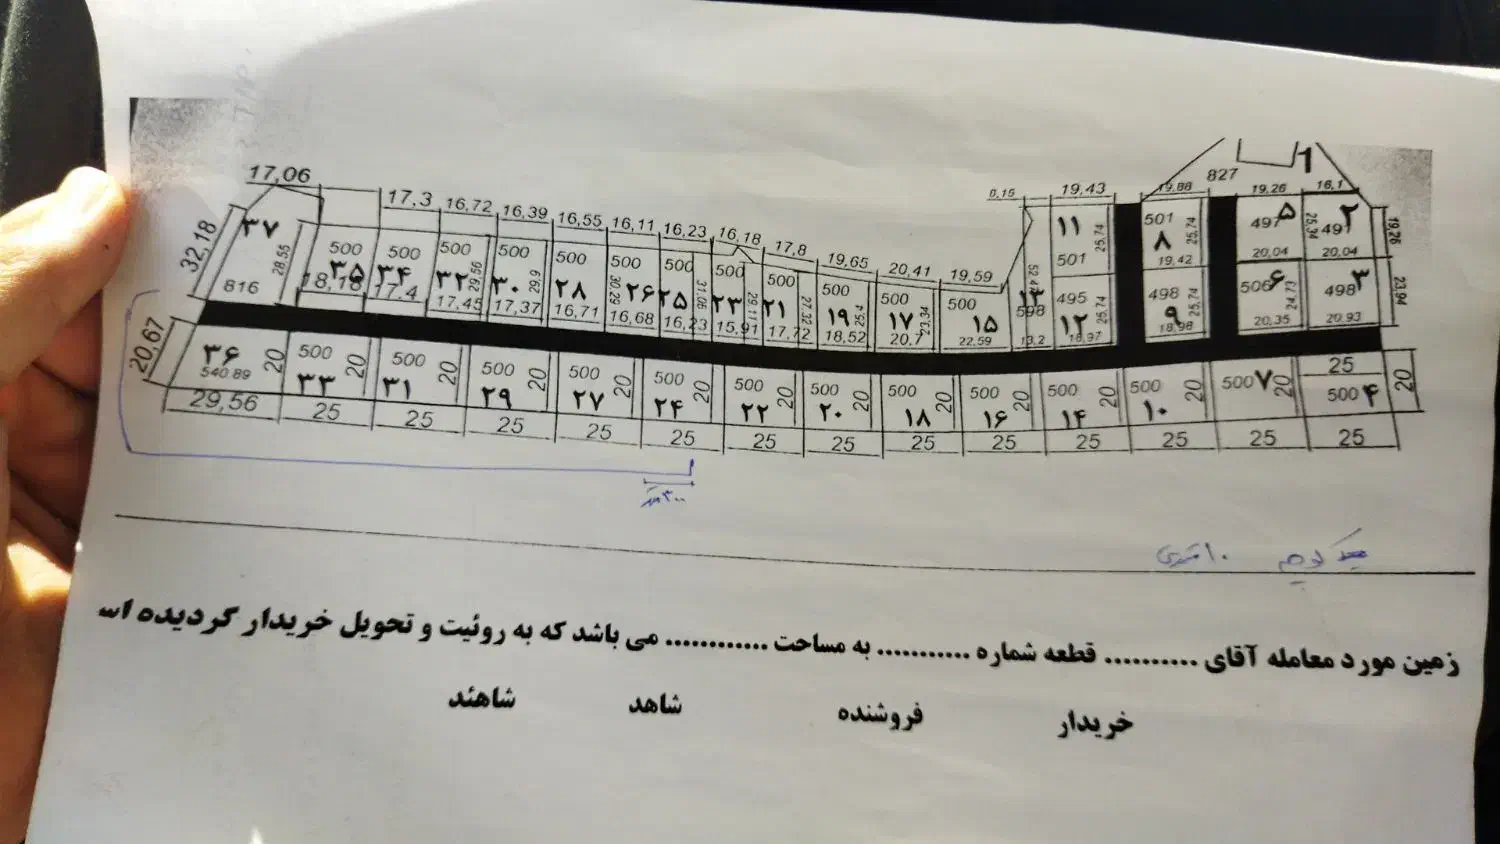 1
827
17,06 17,3 16,72 16,39 16,55 16,11 16,23 16,18 17,8 19,65 20,41 19,59 0,15 19,43 19,88 19,26 16,1
32,18 ۳۷ 816 28,55
500 ۳۵ 18,18
500 ۳۴ 17,4
500 ۳۲ 29,56 17,45
500 ۳۰ 29,9 17,37
500 ۲۸ 16,71
500 30,29 ۲۶ 16,68
500 ۲۵ 31,06 16,23
500 ۲۳ 29,11 15,91
500 ۲۱ 27,32 17,72
500 ۱۹ 25,4 18,52
500 ۱۷ 23,34 20,7
500 ۱۵ 22,59
۱۳ 598 13,2
۱۱ 25,74 501
495 ۱۲ 25,74 18,97
501 ۸ 25,74 19,42
498 ۹ 25,74 18,98
497 ۵ 25,34 20,04
۲ 497 20,04 19,26
506 ۶ 24,73 20,35
498 ۳ 20,93 23,94
20,67 ۳۶ 540.89 20 29,56
500 ۳۳ 20 25
500 ۳۱ 20 25
500 ۲۹ 20 25
500 ۲۷ 20 25
500 ۲۴ 20 25
500 ۲۲ 20 25
500 ۲۰ 20 25
500 ۱۸ 20 25
500 ۱۶ 20 25
500 ۱۴ 20 25
500 ۱۰ 20 25
500 ۷ 20 25
25 500 ۴ 20 25
۳۰۰ متر
۱۰ متری
زمین مورد معامله آقای .......... قطعه شماره ........... به مساحت ............ می باشد که به روئیت و تحویل خریدار گردیده اس
خریدار فروشنده شاهد شاهئد